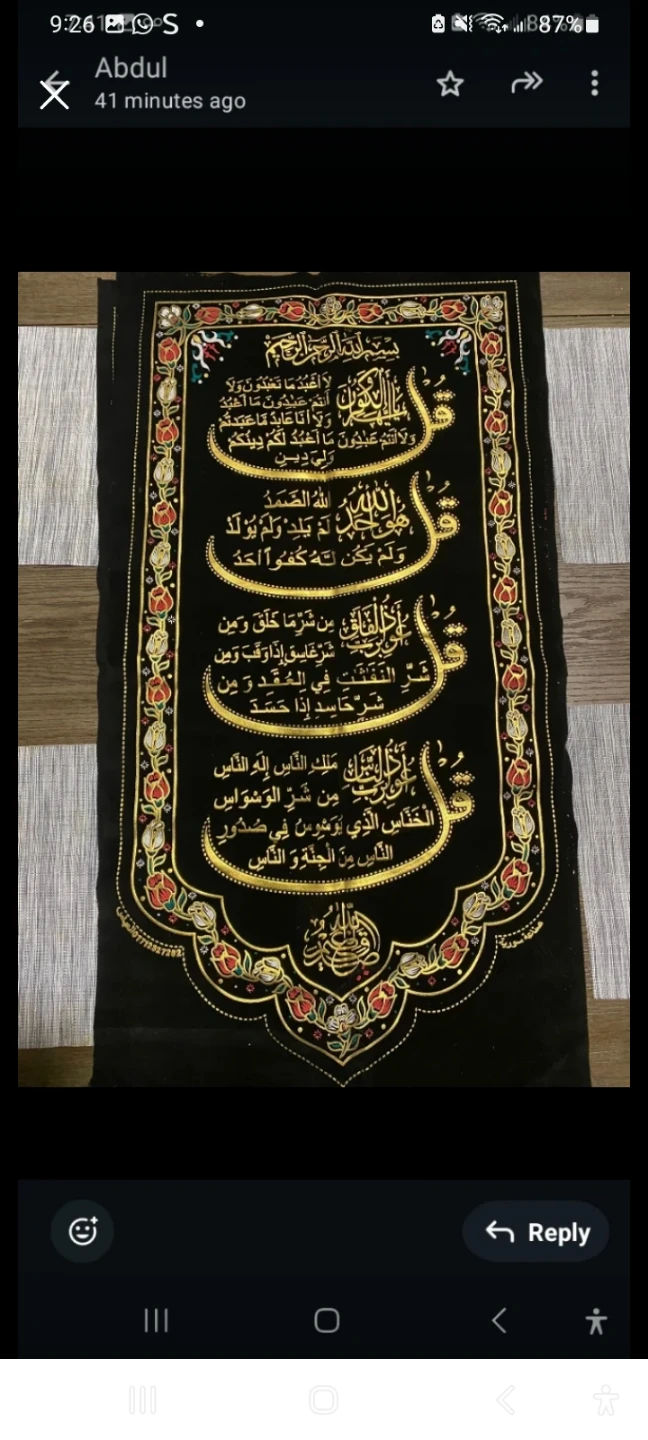 9:26
87%
Abdul
41 minutes ago
بسم الله الرحمن الرحيم
قل يا أيها الكافرون
لا أَعْبُدُ مَا تَعْبُدُونَ وَلَا
أَنتُمْ عَٰبِدُونَ مَا أَعْبُدُ
وَلَا أَنَا عَابِدٌ مَّا عَبَدتُّمْ
وَلَا أَنتُمْ عَٰبِدُونَ مَا أَعْبُدُ لَكُمْ دِينُكُمْ
وَلِيَ دِينِ
قل هو الله أحد
اللهُ الصَّمَدُ
لَمْ يَلِدْ وَلَمْ يُوْلَدْ
وَلَمْ يَكُن لَّهُ كُفُوًا أَحَدٌ
قل أعوذ برب الفلق
مِن شَرِّ مَا خَلَقَ وَمِن
شَرِّ غَاسِقٍ إِذَا وَقَبَ وَمِن
شَرِّ النَّفَّٰثَٰتِ فِي الْعُقَدِ وَمِن
شَرِّ حَاسِدٍ إِذَا حَسَدَ
قل أعوذ برب الناس
مَلِكِ النَّاسِ إِلَٰهِ النَّاسِ
مِن شَرِّ الْوَسْوَاسِ
الْخَنَّاسِ الَّذِي يُوَسْوِسُ فِي صُدُورِ
النَّاسِ مِنَ الْجِنَّةِ وَ النَّاسِ
صدق الله العظيم
Reply